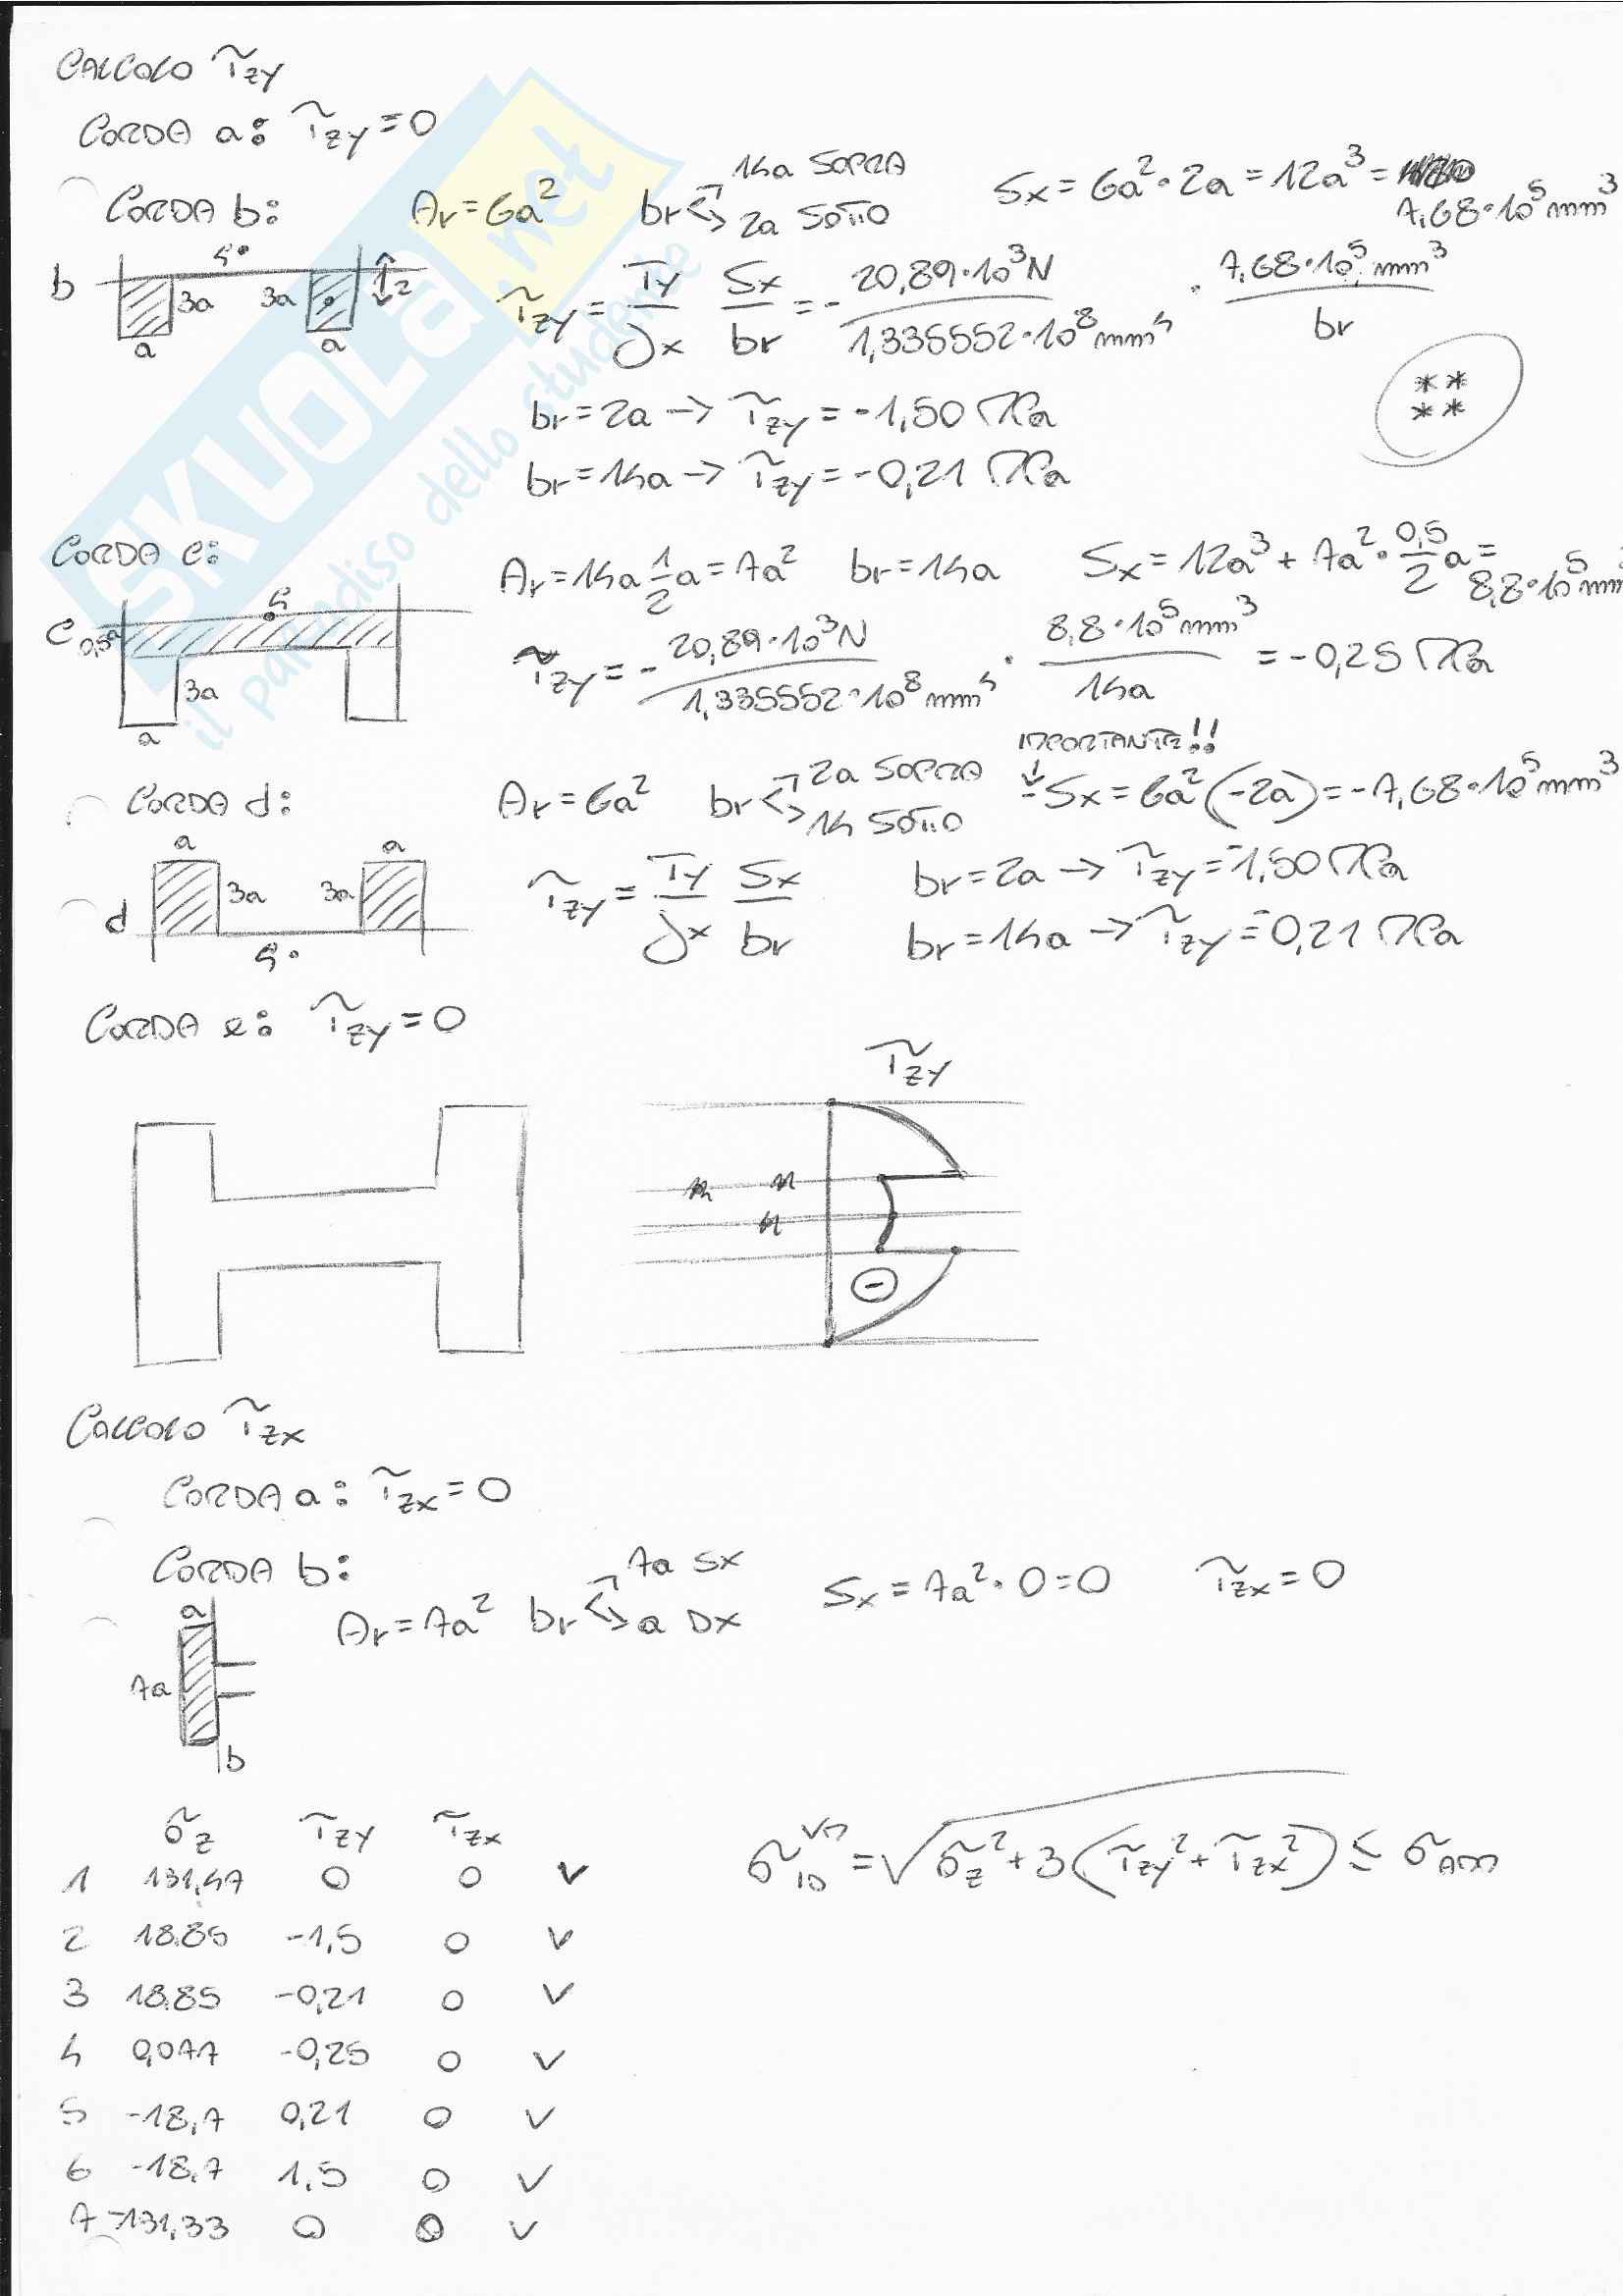 CALCOLO τzy
CORDA a: τzy = 0
CORDA b: Ar = 6a² br 14a SOPRA 2a SOTTO Sx = 6a² · 2a = 12a³ = 7,68·10⁵ mm³
b G 3a 3a 2 a a
τzy = Ty/Jx Sx/br = - 20,89·10³N / 1,335552·10⁸mm⁴ · 7,68·10⁵mm³ / br
br = 2a → τzy = -1,50 MPa
br = 14a → τzy = -0,21 MPa
**
**
CORDA c: Ar = 14a 1/2 a = 7a² br = 14a Sx = 12a³ + 7a² · 0,5/2 a = 8,8·10⁵ mm
c 0,5a G 3a a
τzy = - 20,89·10³N / 1,335552·10⁸mm⁴ · 8,8·10⁵mm³ / 14a = -0,25 MPa
IMPORTANTE!!
CORDA d: Ar = 6a² br 2a SOPRA 14 SOTTO -Sx = 6a²(-2a) = -7,68·10⁵mm³
a a 3a 3a d G
τzy = Ty/Jx Sx/br br = 2a → τzy = -1,50 MPa
br = 14a → τzy = -0,21 MPa
CORDA e: τzy = 0
τzy
-
CALCOLO τzx
CORDA a: τzx = 0
CORDA b: Ar = 7a² br 7a SX a DX Sx = 7a² · 0 = 0 τzx = 0
a 7a b
σz τzy τzx σ^VM_ID = √(σz² + 3(τzy² + τzx²)) ≤ σAM
1 131,47 0 0 ✓
2 18.85 -1,5 0 ✓
3 18.85 -0,21 0 ✓
4 0,077 -0,25 0 ✓
5 -18,7 0,21 0 ✓
6 -18,7 1,5 0 ✓
7 -131,33 0 0 ✓
SKUOLA.net
il paradiso dello studente